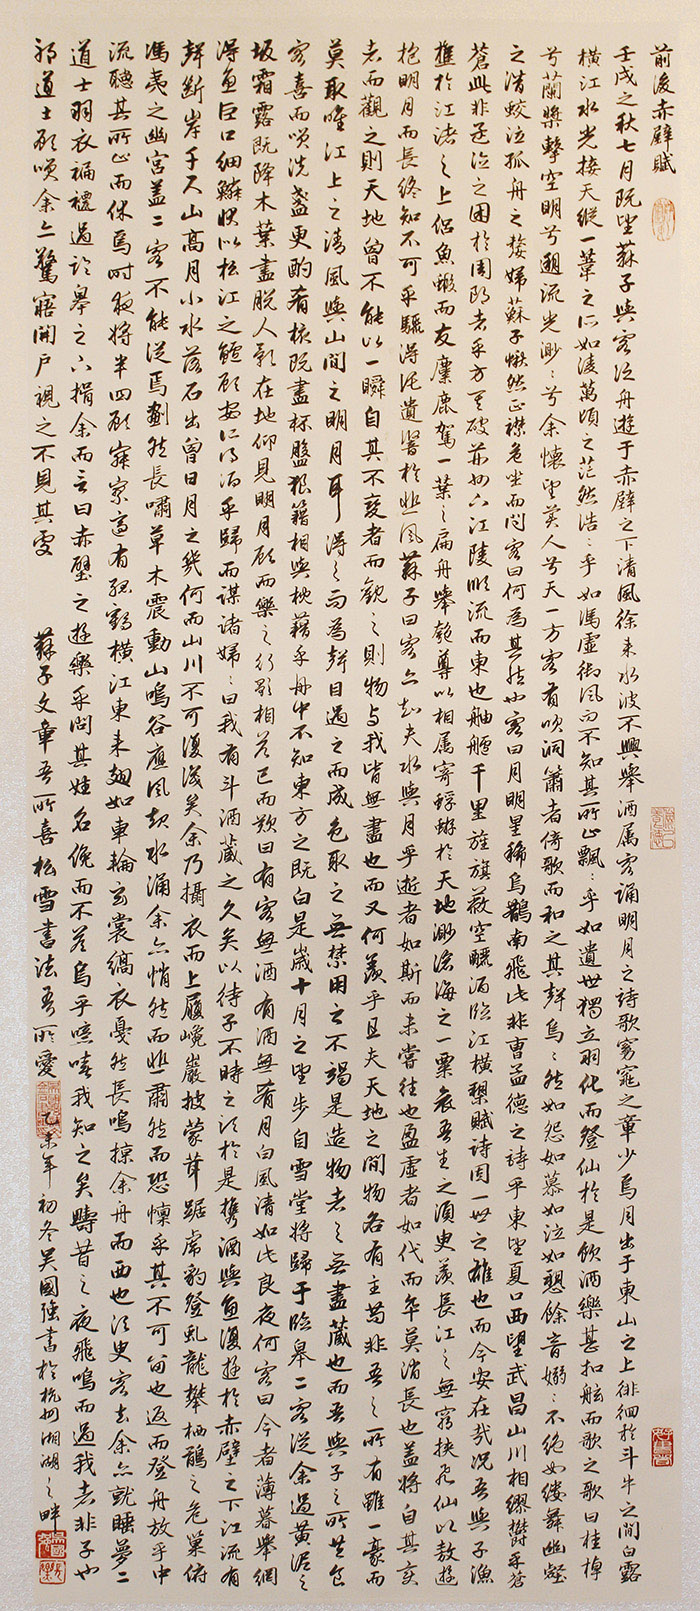 前後赤壁賦
壬戌之秋七月既望蘇子與客泛舟遊于赤壁之下清風徐来水波不興舉酒属客誦明月之詩歌窈窕之章少焉月出于東山之上徘徊於斗牛之間白露
橫江水光接天縱一葦之所如凌萬頃之茫然浩〻乎如馮虛御風而不知其所止飄〻乎如遺世獨立羽化而登仙於是飲酒樂甚扣舷而歌之歌曰桂棹
兮蘭槳擊空明兮溯流光渺〻兮余懷望美人兮天一方客有吹洞簫者倚歌而和之其聲烏〻然如怨如慕如泣如愬餘音嫋〻不絕如縷舞幽壑
之潛蛟泣孤舟之嫠婦蘇子愀然正襟危坐而問客曰何為其然也客曰月明星稀烏鵲南飛此非曹孟德之詩乎東望夏口西望武昌山川相繆鬱乎蒼
蒼此非孟德之困於周郎者乎方其破荊州下江陵順流而東也舳艫千里旌旗蔽空釃酒臨江橫槊賦詩固一世之雄也而今安在哉況吾與子漁
樵於江渚之上侶魚蝦而友麋鹿駕一葉之扁舟舉匏尊以相属寄蜉蝣於天地渺滄海之一粟哀吾生之須臾羨長江之無窮挾飛仙以敖遊
抱明月而長終知不可乎驟得託遺響於悲風蘇子曰客亦知夫水與月乎逝者如斯而未嘗往也盈虛者如代而卒莫消長也蓋將自其變
者而觀之則天地曾不能以一瞬自其不變者而觀之則物与我皆無盡也而又何羨乎且夫天地之間物各有主苟非吾之所有雖一毫而
莫取唯江上之清風與山間之明月耳得之而為聲目遇之而成色取之無禁用之不竭是造物者之無盡藏也而吾與子之所共食
客喜而笑洗盞更酌肴核既盡杯盤狼藉相與枕藉乎舟中不知東方之既白是歲十月之望步自雪堂將歸于臨皋二客從余過黃泥之
坂霜露既降木葉盡脫人影在地仰見明月顧而樂之行歌相答已而歎曰有客無酒有酒無肴月白風清如此良夜何客曰今者薄暮舉網
得魚巨口細鱗狀如松江之鱸顧安所得酒乎歸而謀諸婦〻曰我有斗酒藏之久矣以待子不時之須於是攜酒與魚復遊於赤壁之下江流有
聲斷岸千尺山高月小水落石出曾日月之幾何而山川不可復識矣余乃攝衣而上履巉巖披蒙茸踞虎豹登虬龍攀栖鶻之危巢俯
馮夷之幽宮蓋二客不能從焉劃然長嘯草木震動山鳴谷應風起水涌余亦悄然而悲肅然而恐懍乎其不可留也返而登舟放乎中
流聽其所止而休焉時夜將半四顧寂寥適有孤鶴橫江東来翅如車輪玄裳縞衣戛然長鳴掠余舟而西也須臾客去余亦就睡夢二
道士羽衣蹁躚過臨皋之下揖余而言曰赤壁之遊樂乎問其姓名俛而不答烏乎噫嘻我知之矣疇昔之夜飛鳴而過我者非子也
邪道士顧笑余亦驚寤開戶視之不見其處 蘇子文章吾所喜松雪書法吾所愛 乙未年初冬吳國強書於杭州湘湖之畔